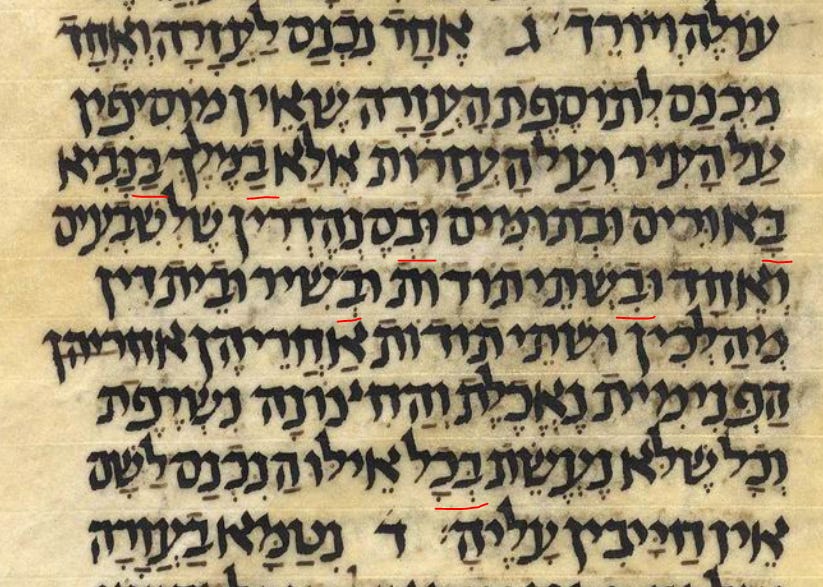 עולה ויורד ג אחד נכנס לעזרה ואחד
ניכנס לתוספת העזרה שאין מוסיפין
על העיר ועל העזרות אלא במילך בנביא
באורים ובתומים ובסנהדרין שלשבעים
ואחד ובשתי תודות ובשיר ובית דין
מהלכין ושתי תודות אחריהן אחריהן
הפנימיית נאכלת והחיצונה נשרפת
וכל שלא נעשת בכל אילו הנכנס לשם
אין חייבין עליה ד נטמא בעזרה